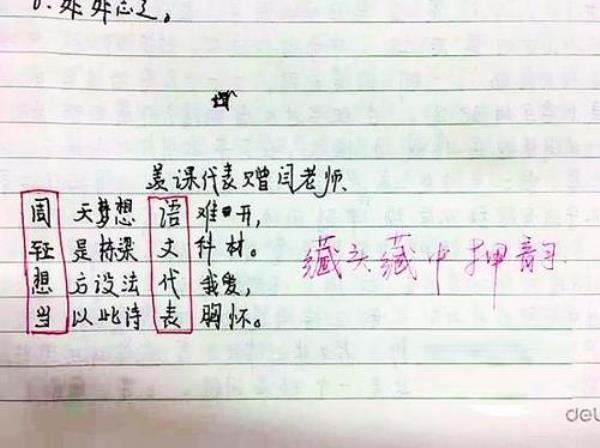 课代表赠闫老师
周天梦想语难开,
轻是栋梁文科材。
想方设法代我爱,
当以此诗表胸怀。
藏头藏中押韵